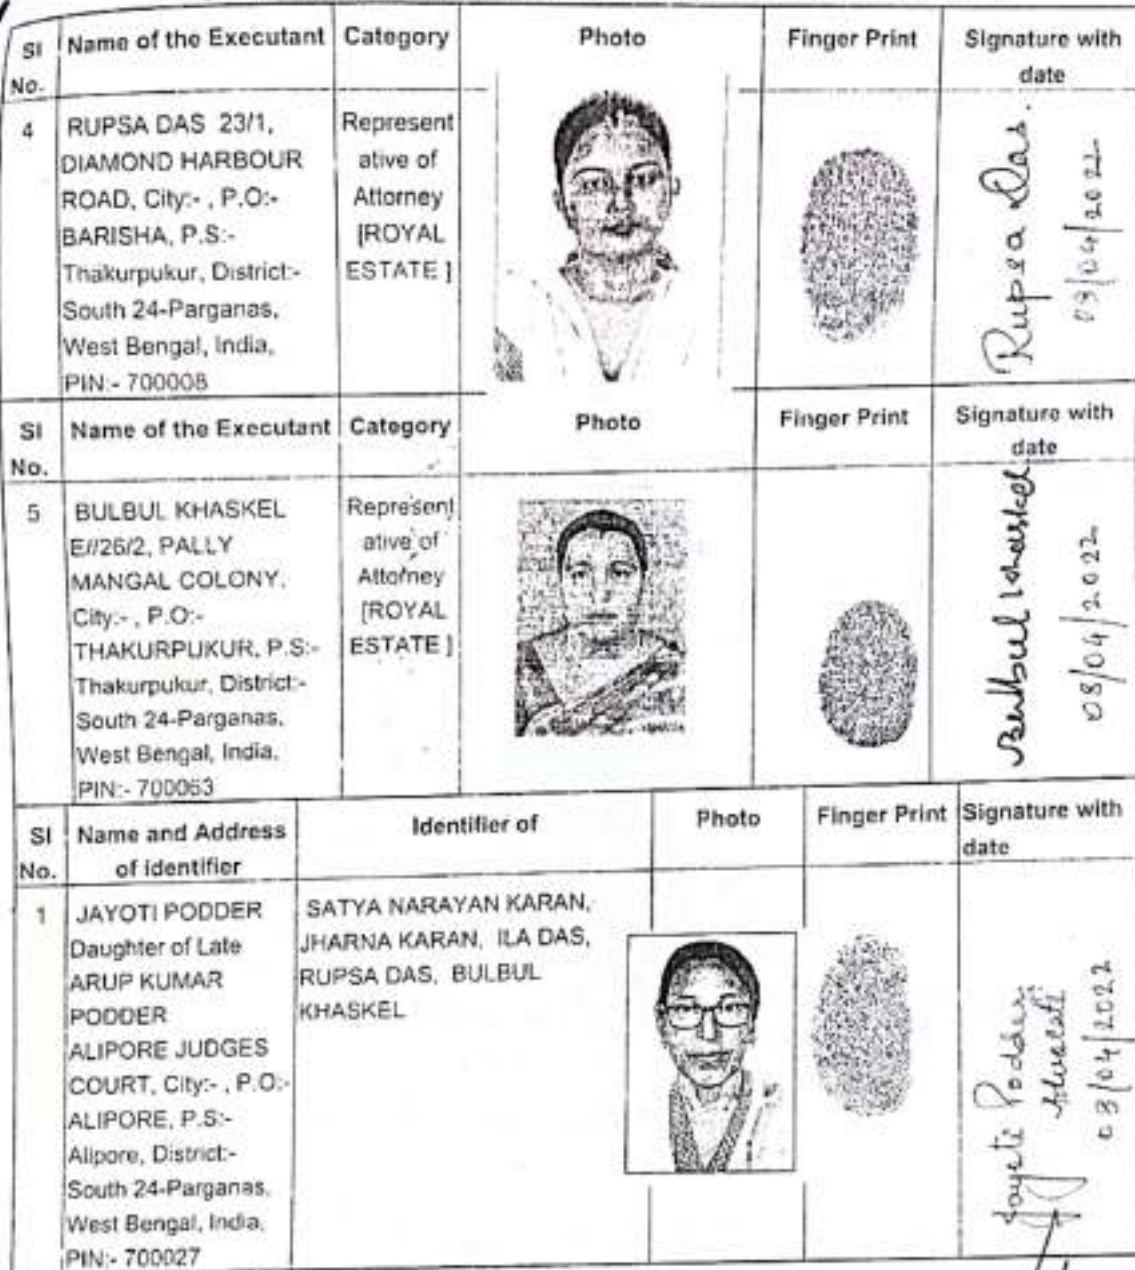 Sl No. Name of the Executant Category Photo Finger Print Signature with date
4 RUPSA DAS 23/1,
DIAMOND HARBOUR
ROAD, City:- , P.O:-
BARISHA, P.S:-
Thakurpukur, District:-
South 24-Parganas,
West Bengal, India,
PIN:- 700008
Represent
ative of
Attorney
[ROYAL
ESTATE ]
Rupsa Das.
08/04/2022
Sl No. Name of the Executant Category Photo Finger Print Signature with date
5 BULBUL KHASKEL
E//26/2, PALLY
MANGAL COLONY,
City:- , P.O:-
THAKURPUKUR, P.S:-
Thakurpukur, District:-
South 24-Parganas,
West Bengal, India,
PIN:- 700063
Represent
ative of
Attorney
[ROYAL
ESTATE ]
Bulbul Khaskel
08/04/2022
Sl No. Name and Address of identifier Identifier of Photo Finger Print Signature with date
1 JAYOTI PODDER
Daughter of Late
ARUP KUMAR
PODDER
ALIPORE JUDGES
COURT, City:- , P.O:-
ALIPORE, P.S:-
Alipore, District:-
South 24-Parganas,
West Bengal, India,
PIN:- 700027
SATYA NARAYAN KARAN,
JHARNA KARAN, ILA DAS,
RUPSA DAS, BULBUL
KHASKEL
Jayoti Podder
Advocate
08/04/2022